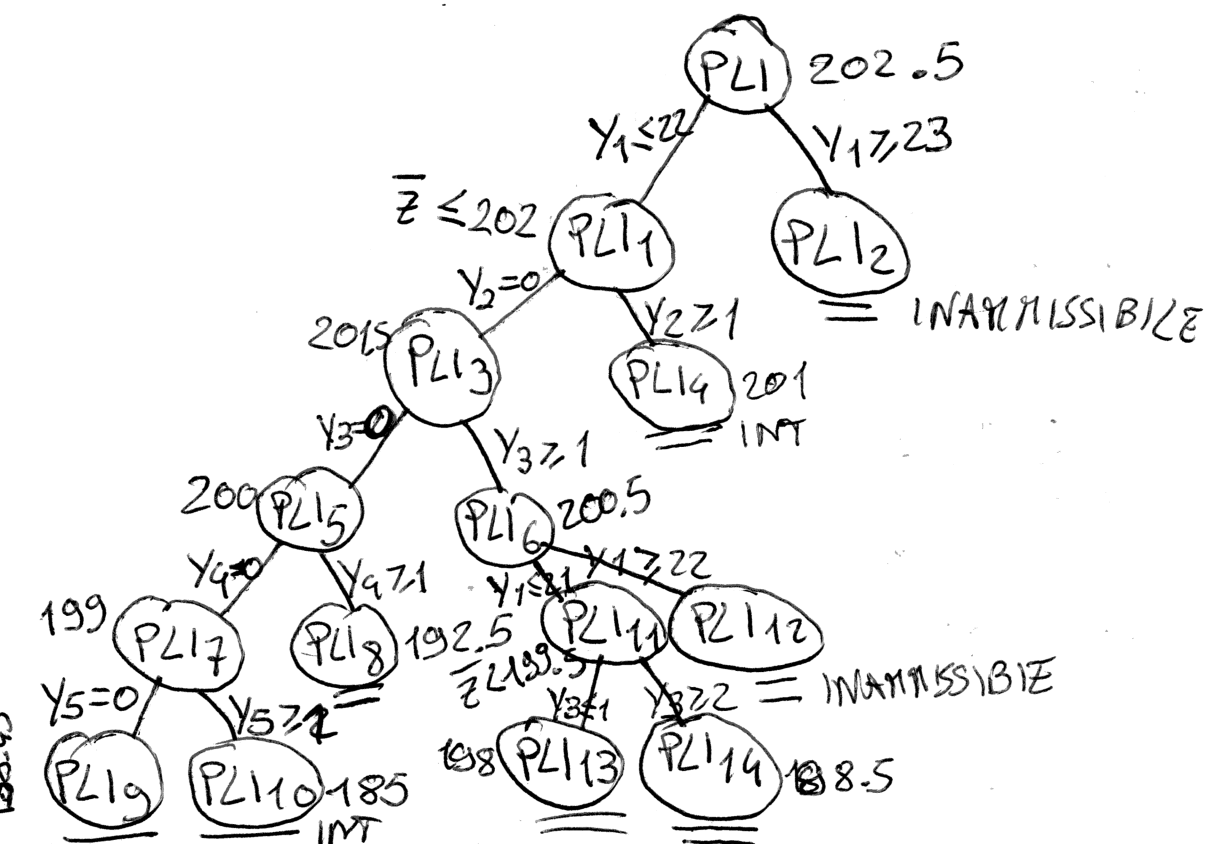 PLI 202.5
Y1≤22 Y1≥23
z̄ ≤202 PLI1 PLI2
INAMMISSIBILE
Y2=0 Y2≥1
201,5 PLI3 PLI4 201
INT
Y3=0 Y3≥1
200 PLI5 PLI6 200.5
Y4=0 Y4≥1 Y1≤21 Y1≥22
199 PLI7 PLI8 192.5 PLI11 PLI12
z̄≤199.5 INAMMISSIBILE
Y5=0 Y5≥1 Y3≤1 Y3≥2
PLI9 PLI10 185 198 PLI13 PLI14 188.5
INT